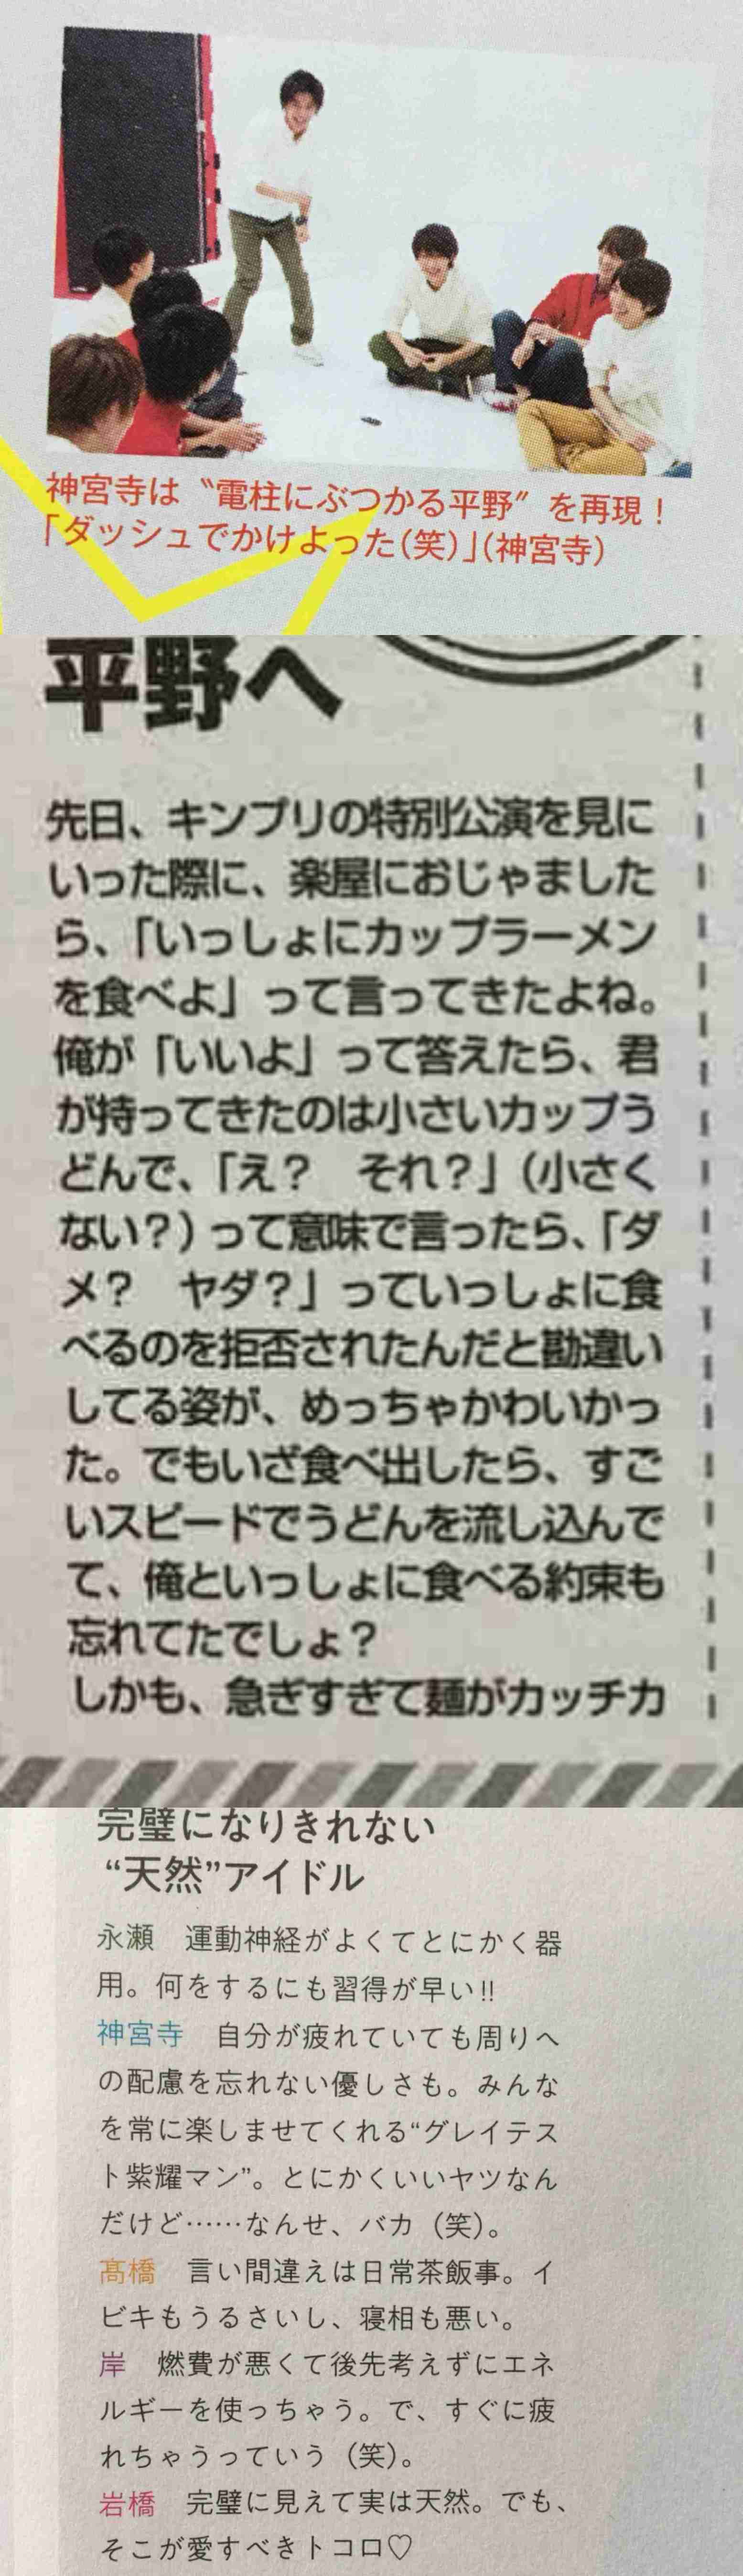 神宮寺は〝電柱にぶつかる平野〞を再現！
「ダッシュでかけよった(笑)」(神宮寺)
平野へ
先日、キンプリの特別公演を見に
いった際に、楽屋におじゃました
ら、「いっしょにカップラーメン
を食べよ」って言ってきたよね。
俺が「いいよ」って答えたら、君
が持ってきたのは小さいカップう
どんで、「え？　それ？」（小さく
ない？）って意味で言ったら、「ダ
メ？　ヤダ？」っていっしょに食
べるのを拒否されたんだと勘違い
してる姿が、めっちゃかわいかっ
た。でもいざ食べ出したら、すご
いスピードでうどんを流し込んで
て、俺といっしょに食べる約束も
忘れてたでしょ？
しかも、急ぎすぎて麺がカッチカ
完璧になりきれない
“天然”アイドル
永瀬　運動神経がよくてとにかく器
用。何をするにも習得が早い!!
神宮寺　自分が疲れていても周りへ
の配慮を忘れない優しさも。みんな
を常に楽しませてくれる“グレイテス
ト紫耀マン”。とにかくいいヤツなん
だけど……なんせ、バカ（笑）。
髙橋　言い間違えは日常茶飯事。イ
ビキもうるさいし、寝相も悪い。
岸　燃費が悪くて後先考えずにエネ
ルギーを使っちゃう。で、すぐに疲
れちゃうっていう（笑）。
岩橋　完璧に見えて実は天然。でも、
そこが愛すべきトコロ♡